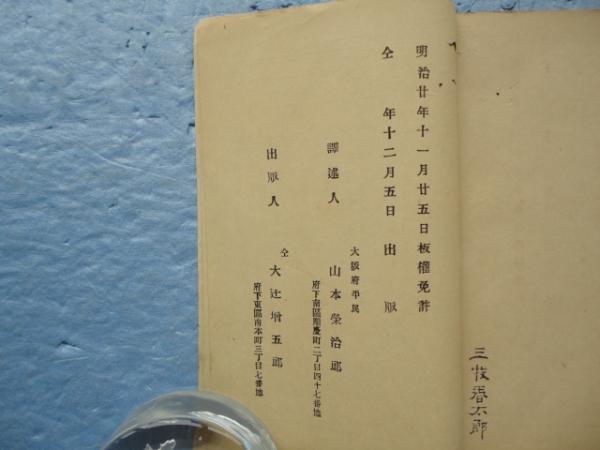 明治廿年十一月廿五日板權免許
仝　年十二月五日出版
譯述人
大阪府平民
山本榮治郎
府下南區順慶町二丁目四十七番地
出版人
仝
大辻増五郎
府下東區南本町三丁目七番地
三枝春太郎